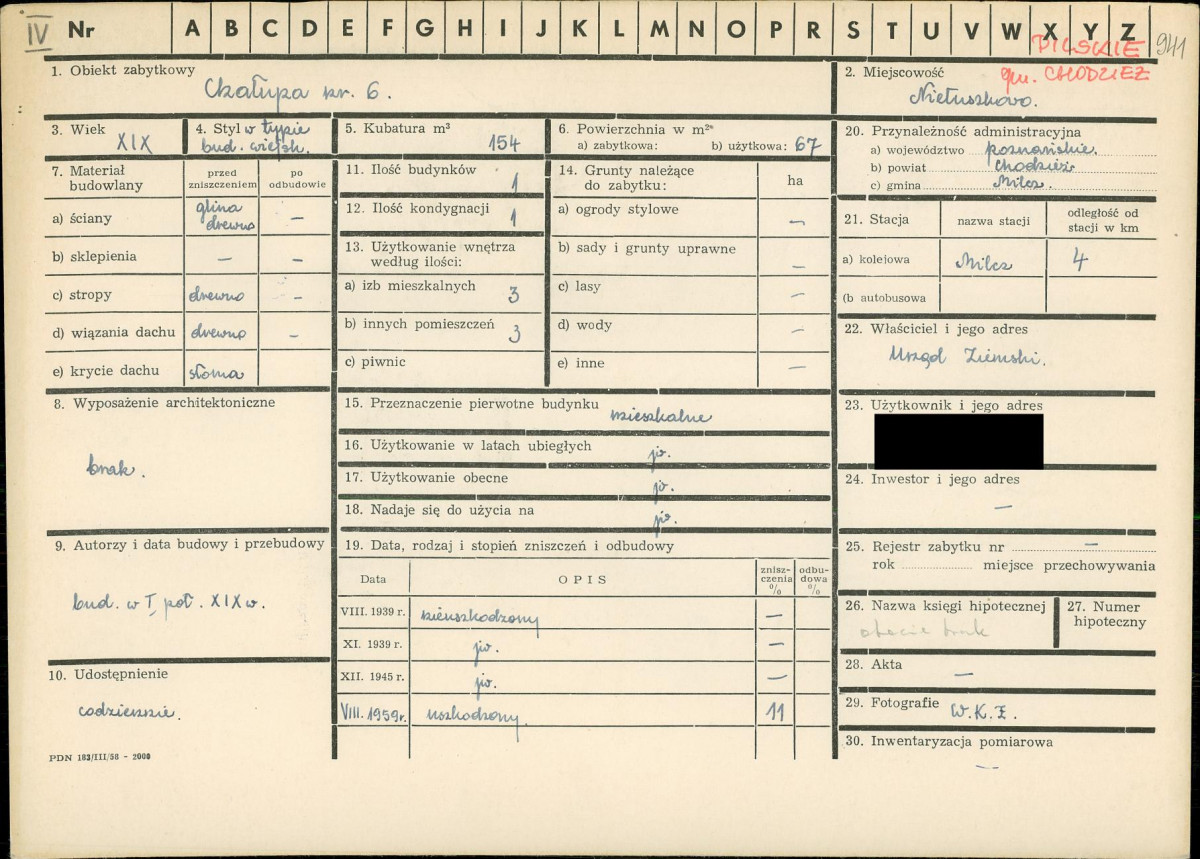 IV Nr A B C D E F G H I J K L M N O P R S T U V W X Y Z
PILSKIE 941
gm. CHODZIEŻ
1. Obiekt zabytkowy
Chałupa nr. 6.
2. Miejscowość
Nietuszkowo.
3. Wiek
XIX
4. Styl w typie
bud. wiejsk.
5. Kubatura m³
154
6. Powierzchnia w m²
a) zabytkowa: b) użytkowa: 67
20. Przynależność administracyjna
a) województwo poznańskie.
b) powiat Chodzież
c) gmina Milcz.
7. Materiał budowlany
przed zniszczeniem
po odbudowie
a) ściany glina drewno –
b) sklepienia – –
c) stropy drewno –
d) wiązania dachu drewno –
e) krycie dachu słoma
11. Ilość budynków 1
12. Ilość kondygnacji 1
13. Użytkowanie wnętrza
według ilości:
a) izb mieszkalnych 3
b) innych pomieszczeń 3
c) piwnic
14. Grunty należące
do zabytku: ha
a) ogrody stylowe –
b) sady i grunty uprawne –
c) lasy –
d) wody –
e) inne –
21. Stacja nazwa stacji odległość od
stacji w km
a) kolejowa Milcz 4
(b autobusowa
22. Właściciel i jego adres
Urząd Ziemski.
8. Wyposażenie architektoniczne
brak.
15. Przeznaczenie pierwotne budynku mieszkalne
16. Użytkowanie w latach ubiegłych jw.
17. Użytkowanie obecne jw.
18. Nadaje się do użycia na jw.
23. Użytkownik i jego adres
24. Inwestor i jego adres
–
9. Autorzy i data budowy i przebudowy
bud. w I poł. XIX w.
10. Udostępnienie
codziennie.
19. Data, rodzaj i stopień zniszczeń i odbudowy
Data OPIS znisz-
czenia
% odbu-
dowa
%
VIII. 1939 r. nieuszkodzony –
XI. 1939 r. jw. –
XII. 1945 r. jw. –
VIII. 1959 r. uszkodzony. 11
25. Rejestr zabytku nr –
rok miejsce przechowywania
26. Nazwa księgi hipotecznej
obecnie brak
27. Numer
hipoteczny
28. Akta
–
29. Fotografie W.K.Z.
30. Inwentaryzacja pomiarowa
–
PDN 183/III/58 - 2000